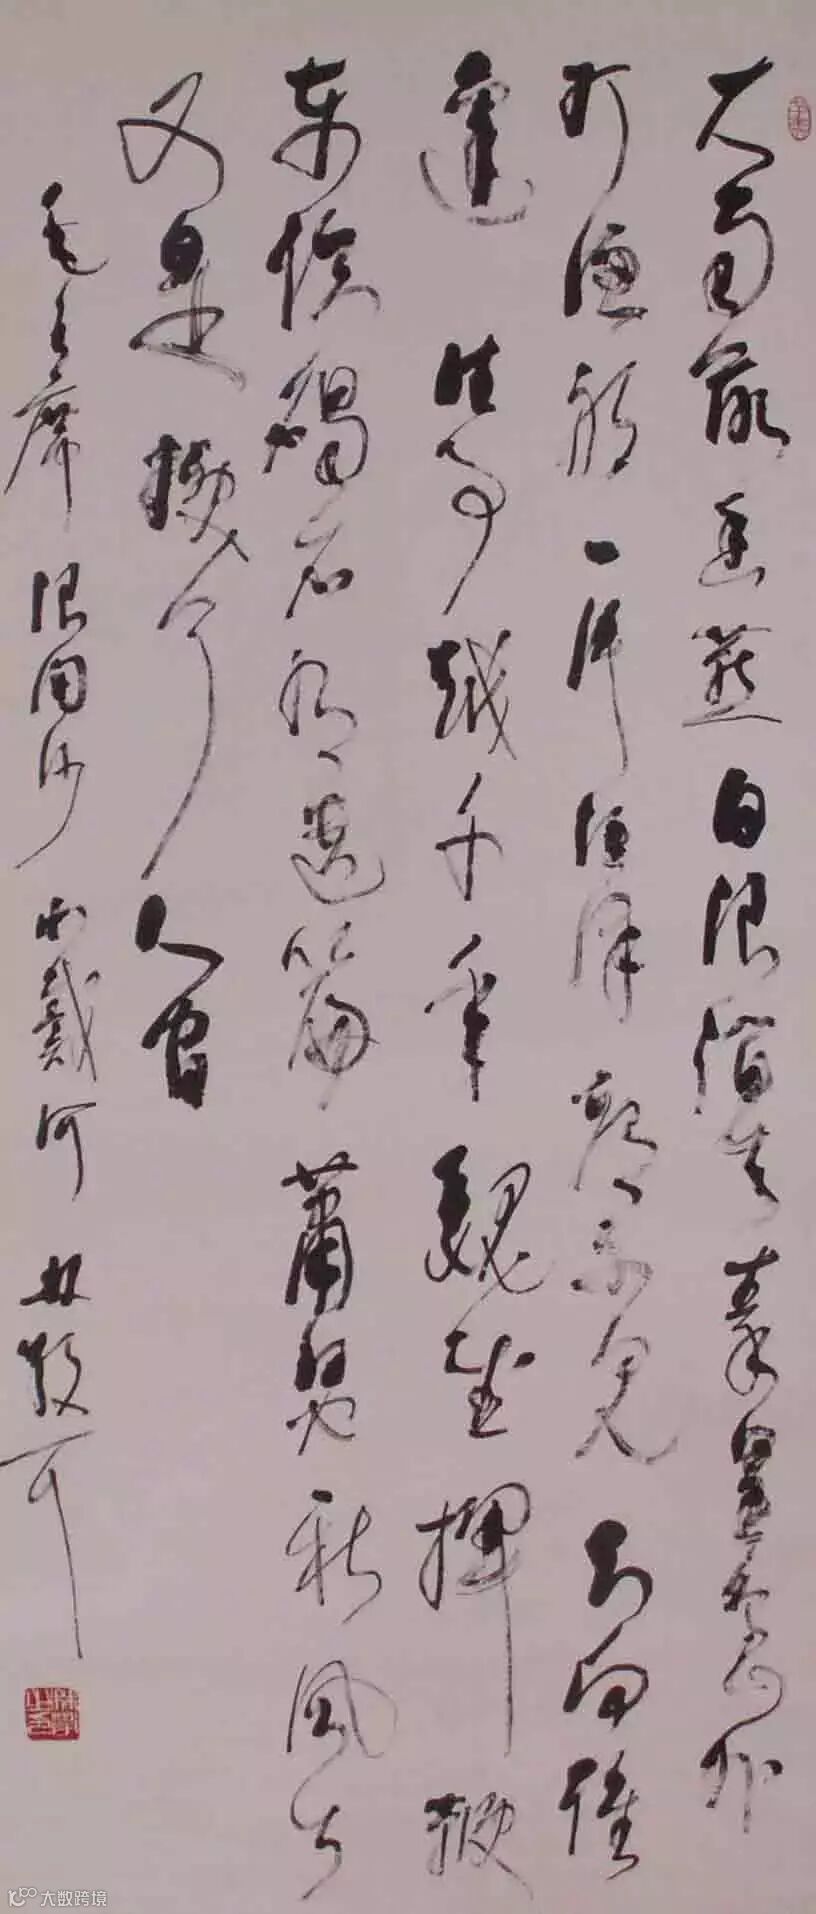 大雨落幽燕白浪滔天秦皇島外
打漁船一片汪洋都不見知向誰
邊往事越千年魏武揮鞭
東臨碣石有遺篇蕭瑟秋風今
又是換了人間
毛主席浪淘沙北戴河林散耳
大数跨境